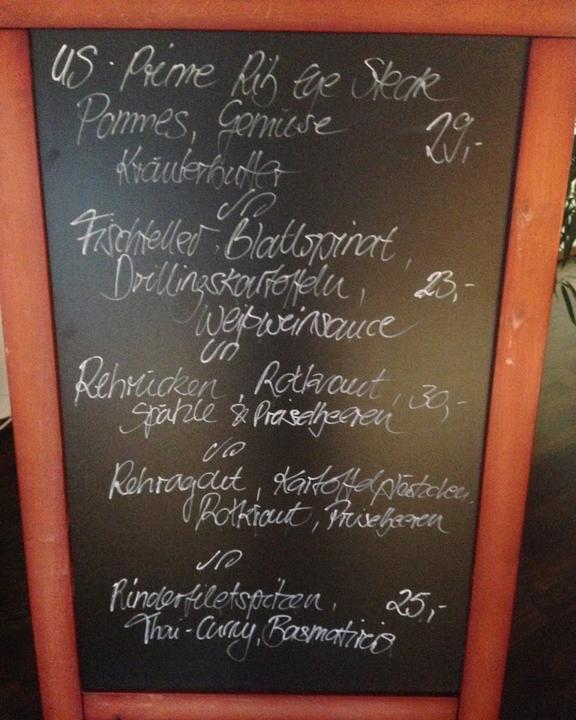 US. Prime Rib Eye Steak
Pommes, Gemüse 29,-
Kräuterbutter
Fischteller, Blattspinat,
Drillingskartoffeln, 23,-
Weißweinsauce
Rehrücken, Rotkraut, 30,-
Spätzle & Preiselbeeren
Rehragout, Kartoffelplätzchen,
Rotkraut, Preiselbeeren
Rinderfiletspitzen, 25,-
Thai-Curry, Basmatireis